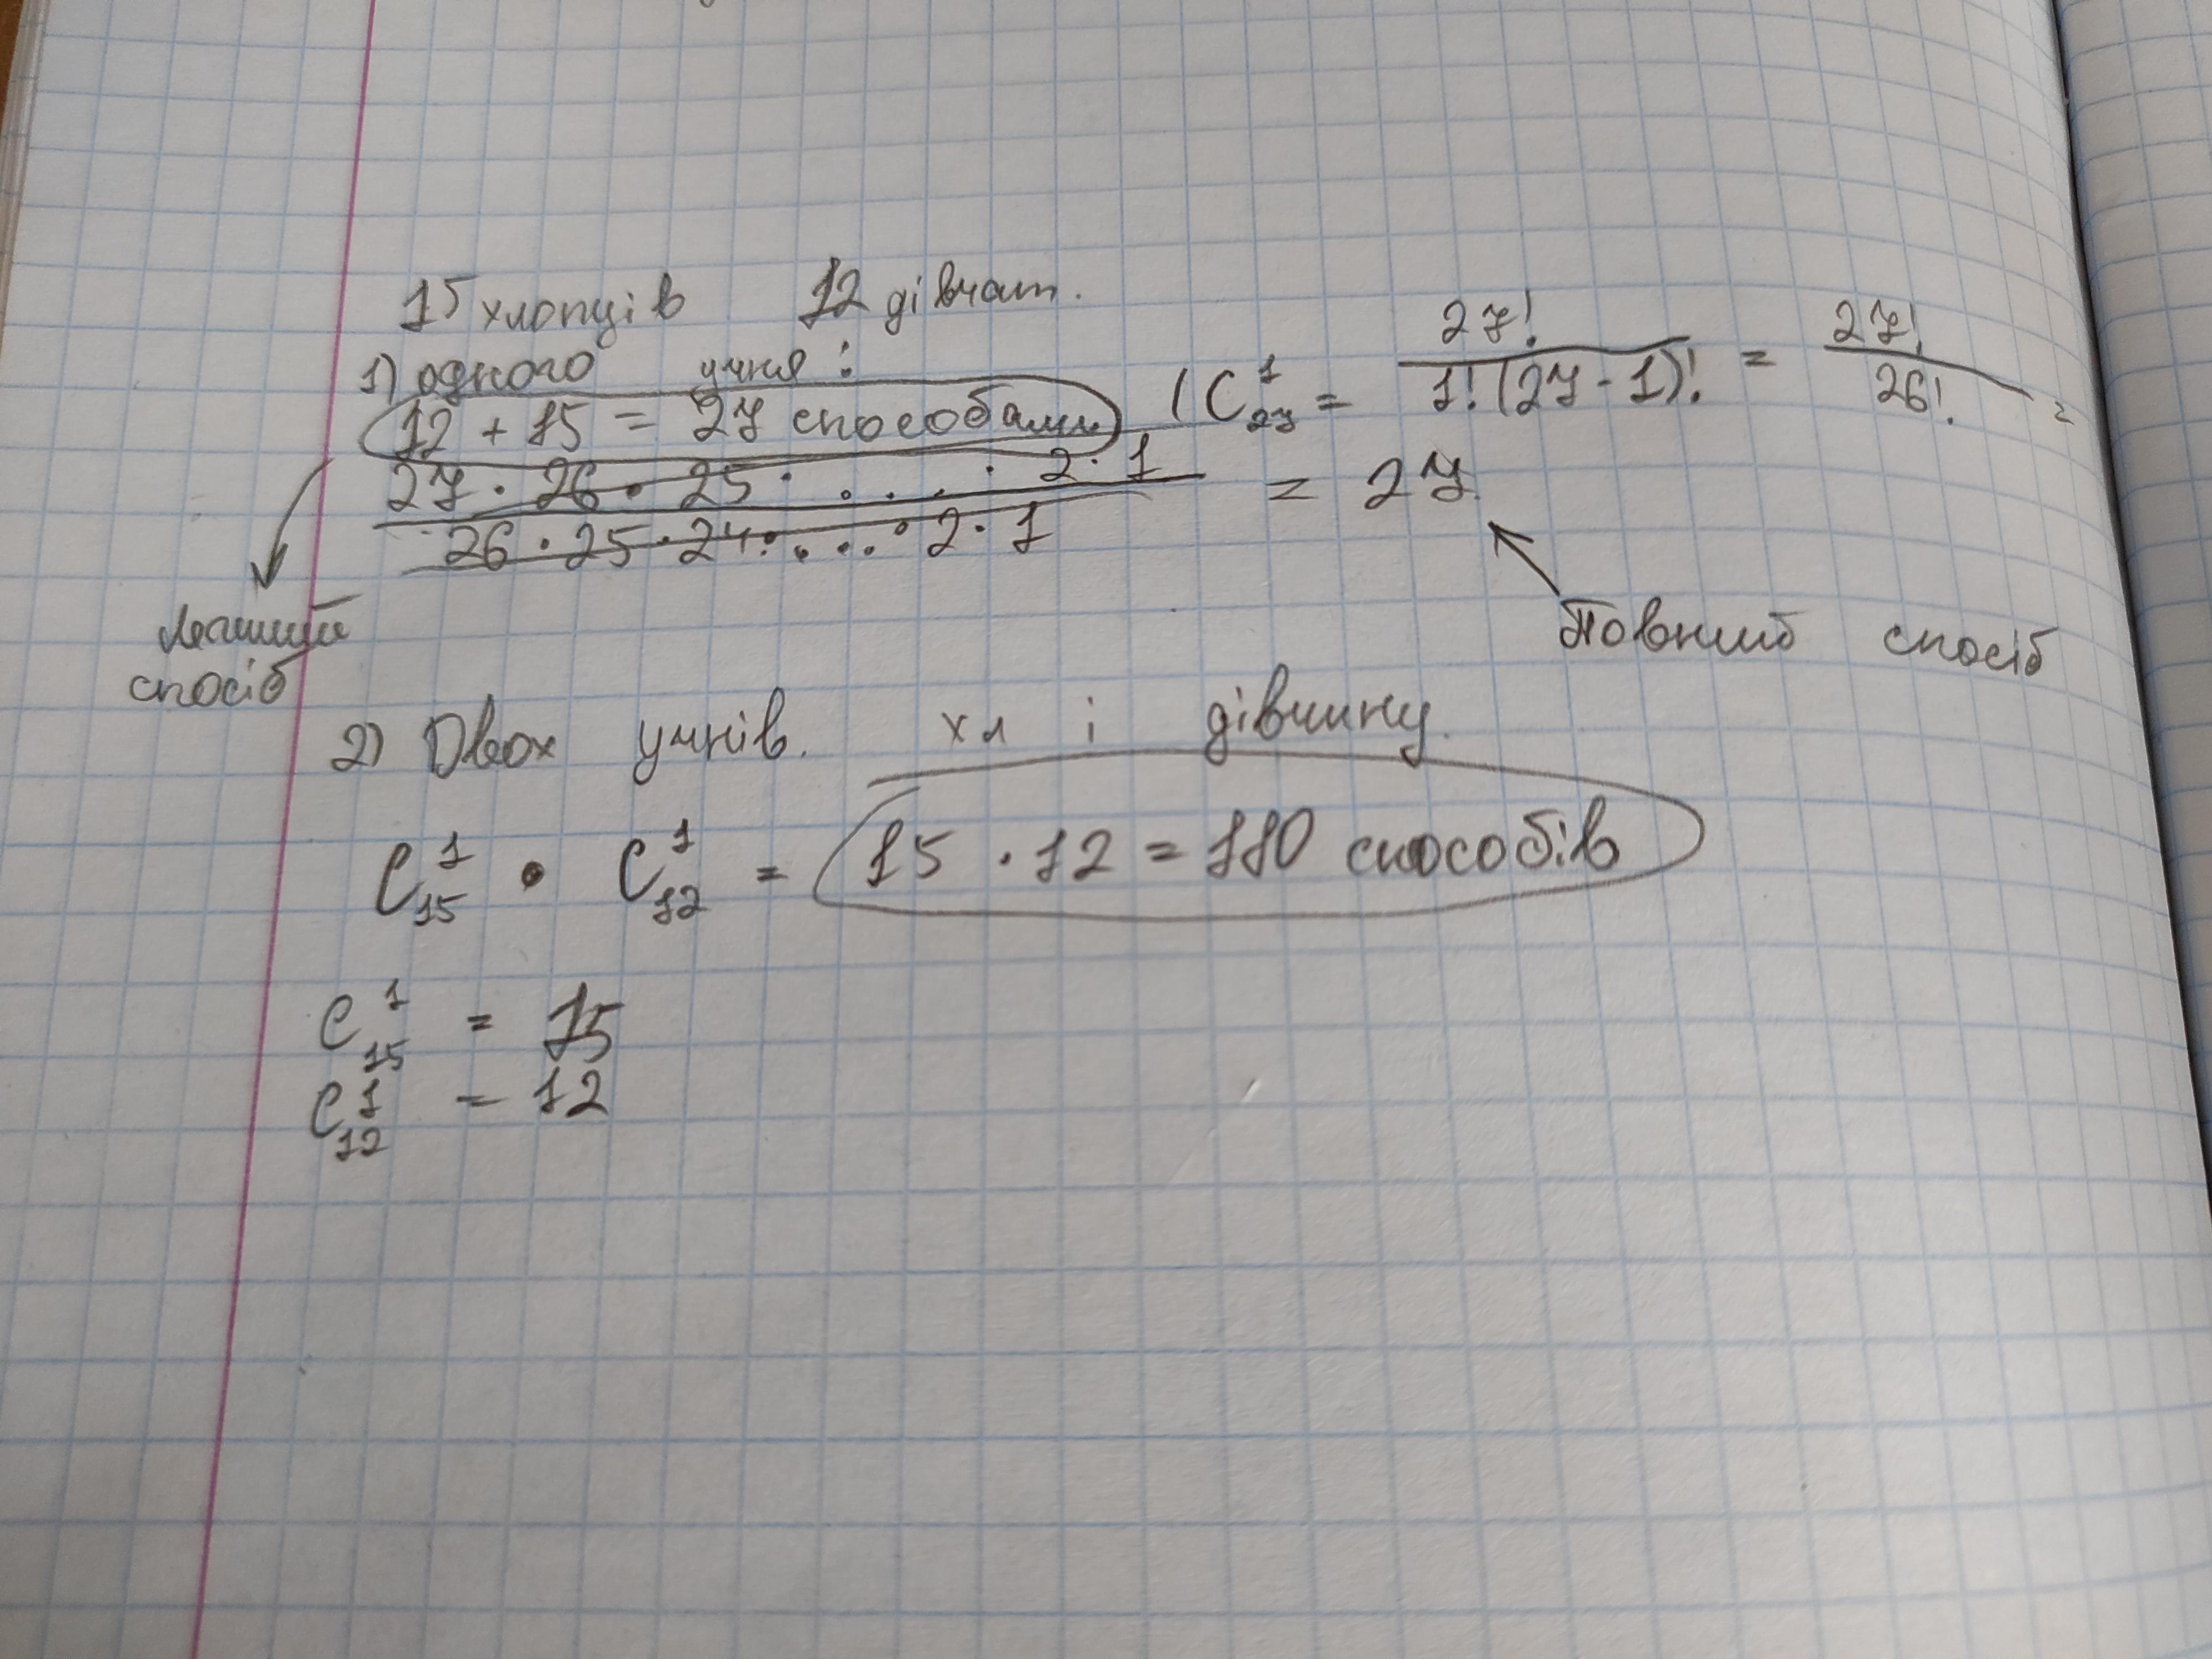 15 хлопців 12 дівчат.
1) одного учня:
12 + 15 = 27 способами (C¹₂₇ = 27!/1!(27-1)! = 27!/26! =
27 · 26 · 25 · . . . · 2 · 1 / 26 · 25 · 24 · . . . · 2 · 1 = 27
Легший спосіб
Повний спосіб
2) Двох учнів. хл і дівчину.
C¹₁₅ · C¹₁₂ = 15 · 12 = 180 способів
C¹₁₅ = 15
C¹₁₂ = 12